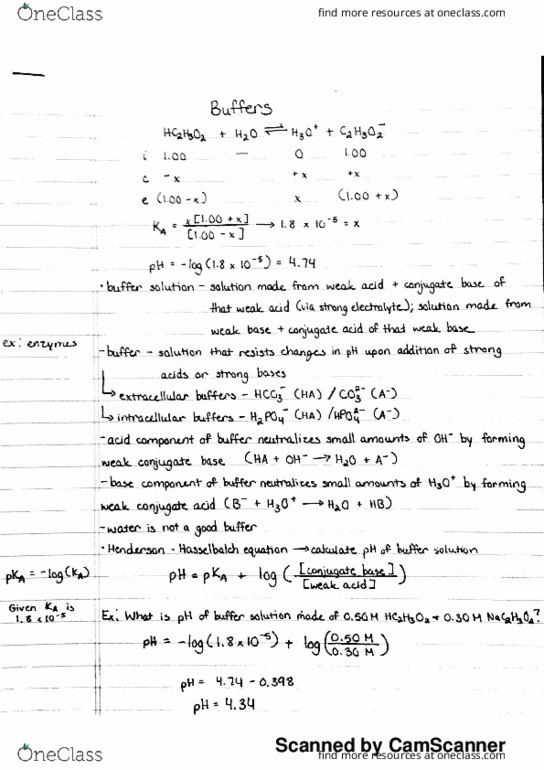 OneClass
find more resources at oneclass.com
Buffers
HC₂H₃O₂ + H₂O ⇌ H₃O⁺ + C₂H₃O₂⁻
i 1.00 — 0 1.00
c -x +x +x
e (1.00-x) x (1.00 + x)
K_A = x[1.00 + x] / [1.00 - x] → 1.8 x 10⁻⁵ = x
pH = -log(1.8 x 10⁻⁵) = 4.74
• buffer solution - solution made from weak acid + conjugate base of
that weak acid (via strong electrolyte); solution made from
weak base + conjugate acid of that weak base
ex: enzymes
- buffer - solution that resists changes in pH upon addition of strong
acids or strong bases
↳ extracellular buffers - HCO₃⁻ (HA) / CO₃²⁻ (A⁻)
↳ intracellular buffers - H₂PO₄⁻ (HA) / HPO₄²⁻ (A⁻)
- acid component of buffer neutralizes small amounts of OH⁻ by forming
weak conjugate base (HA + OH⁻ → H₂O + A⁻)
- base component of buffer neutralizes small amounts of H₃O⁺ by forming
weak conjugate acid (B⁻ + H₃O⁺ → H₂O + HB)
- water is not a good buffer
• Henderson - Hasselbalch equation → calculate pH of buffer solution
pK_A = -log(K_A)
pH = pK_A + log([conjugate base] / [weak acid])
Given K_A is
1.8 x 10⁻⁵
Ex: What is pH of buffer solution made of 0.50M HC₂H₃O₂ + 0.30M NaC₂H₃O₂?
pH = -log(1.8 x 10⁻⁵) + log(0.50 M / 0.30 M)
pH = 4.74 - 0.398
pH = 4.34
Scanned by CamScanner
OneClass
find more resources at oneclass.com